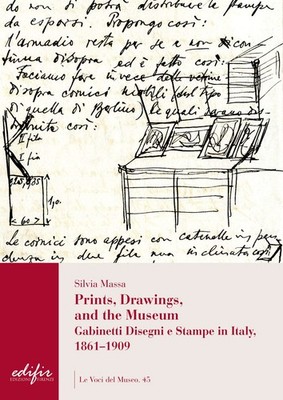 do non si potrà distribuire le stampe
da esporsi. Propongo così:
l'armadio resta per se e non si con
tinua disopra ed è fatto così:
Facciamo fare in vece delle vetrine
disopra cornici mobili (sul tipo
di quella di Berlino) le quali
così:
I fila
I fila
60
Le cornici sono appesi con catenelle in pen
denza in due fila una inclinata così
Silvia Massa
Prints, Drawings,
and the Museum
Gabinetti Disegni e Stampe in Italy,
1861–1909
edifir
EDIZIONI FIRENZE
Le Voci del Museo, 45